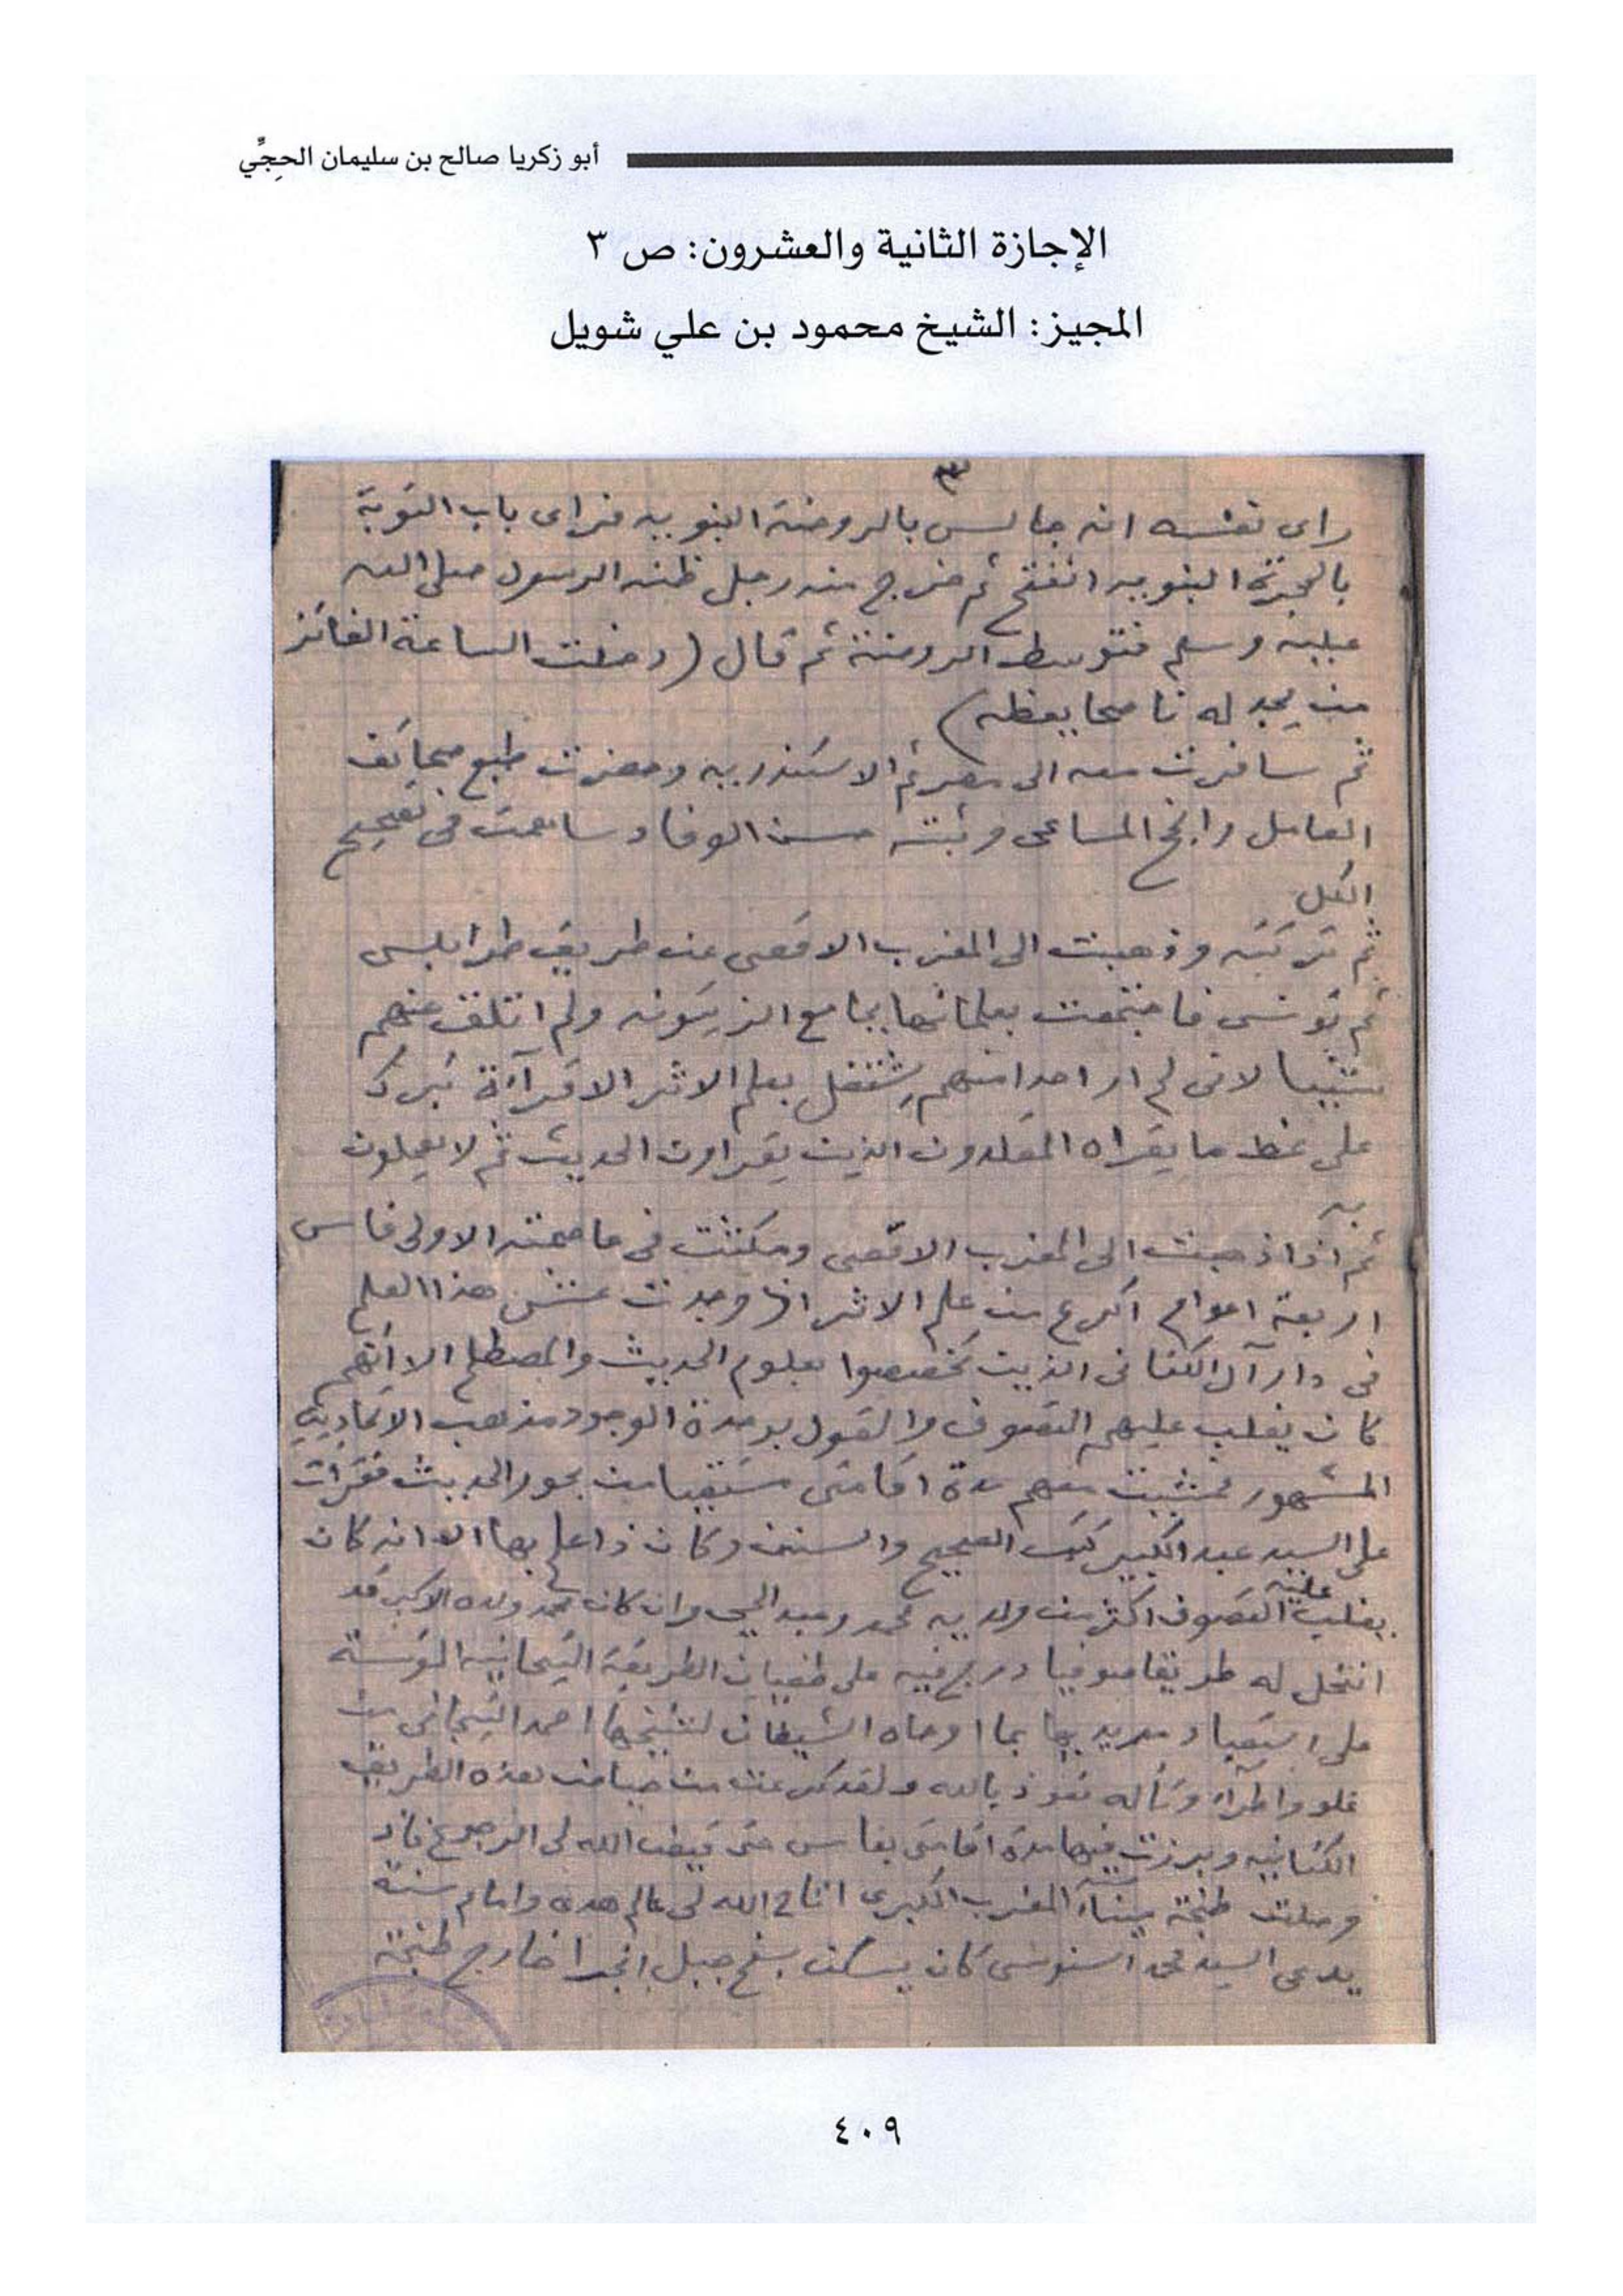 أبو زكريا صالح بن سليمان الحِجِّي
الإجازة الثانية والعشرون: ص ٣
المجيز: الشيخ محمود بن علي شويل
٣
راى نفسه انه جالس بالروضة النبويه فراى باب التوبة
بالحجرة النبويه انفتح ثم خرج منه رجل ظنه الرسول صلى الله
عليه وسلم فتوسط الروضة ثم قال (دخلت الساعة الفائز
من يجد له ناصحا يعظه)
ثم سافرت معه الى مصر ثم الاسكندريه وحضرت طبع صحائف
العامل رابح المساعى وثبته حسن الوفا وساهمت فى تصحيح
الكل
ثم تركته وذهبت الى المغرب الاقصى عن طريق طرابلس
ثم تونس فاجتمعت بعلمائها بجامع الزيتونه ولم اتلق عنهم
شيئا لانى لم ار احدا منهم يشتغل بعلم الاثر الا قرآءة تبرك
على نمط ما يقراه المقلدون الذين يقراون الحديث ثم لا يعملون
به
ثم اذا ذهبت الى المغرب الاقصى ومكثت فى عاصمته الاولى فاس
اربعة اعوام اكرع من علم الاثر اذ وجدت عش هذا العلم
فى دار آل الكتانى الذين تخصصوا بعلوم الحديث والمصطلح الا انهم
كان يغلب عليهم التصوف والقول بوحدة الوجود مذهب الاتحاديه
المشهور فمشيت معهم مدة اقامتى مستقيا من بحور الحديث فقرات
على السيد عبد الكبير كتب الصحيح والسنن وكان ذا علم بها الا انه كان
يغلب عليه التصوف اكثر من ولديه محمد وعبد الحي وان كان محمد ولده الاكبر قد
انتحل له طريقا صوفيا درج فيه على طغيان الطريقة التيجانيه المؤسسة
على استعباد مريديها بما اوحاه الشيطان لشيخها احمد التيجانى من
غلو واطراء وتأله نعوذ بالله ولقد كرعت من حياض هذه الطريق
الكتانيه وبرزت فيها مدة اقامتى بفاس حتى قيض الله لى الرجوع فاذ
وصلت طنجة ميناء المغرب الكبرى اتاح الله لى عالم هدى وامام سنة
يدعى السيد محمد السنوسى كان يسكن بسفح جبل انجرا خارج طنجة
٤٠٩